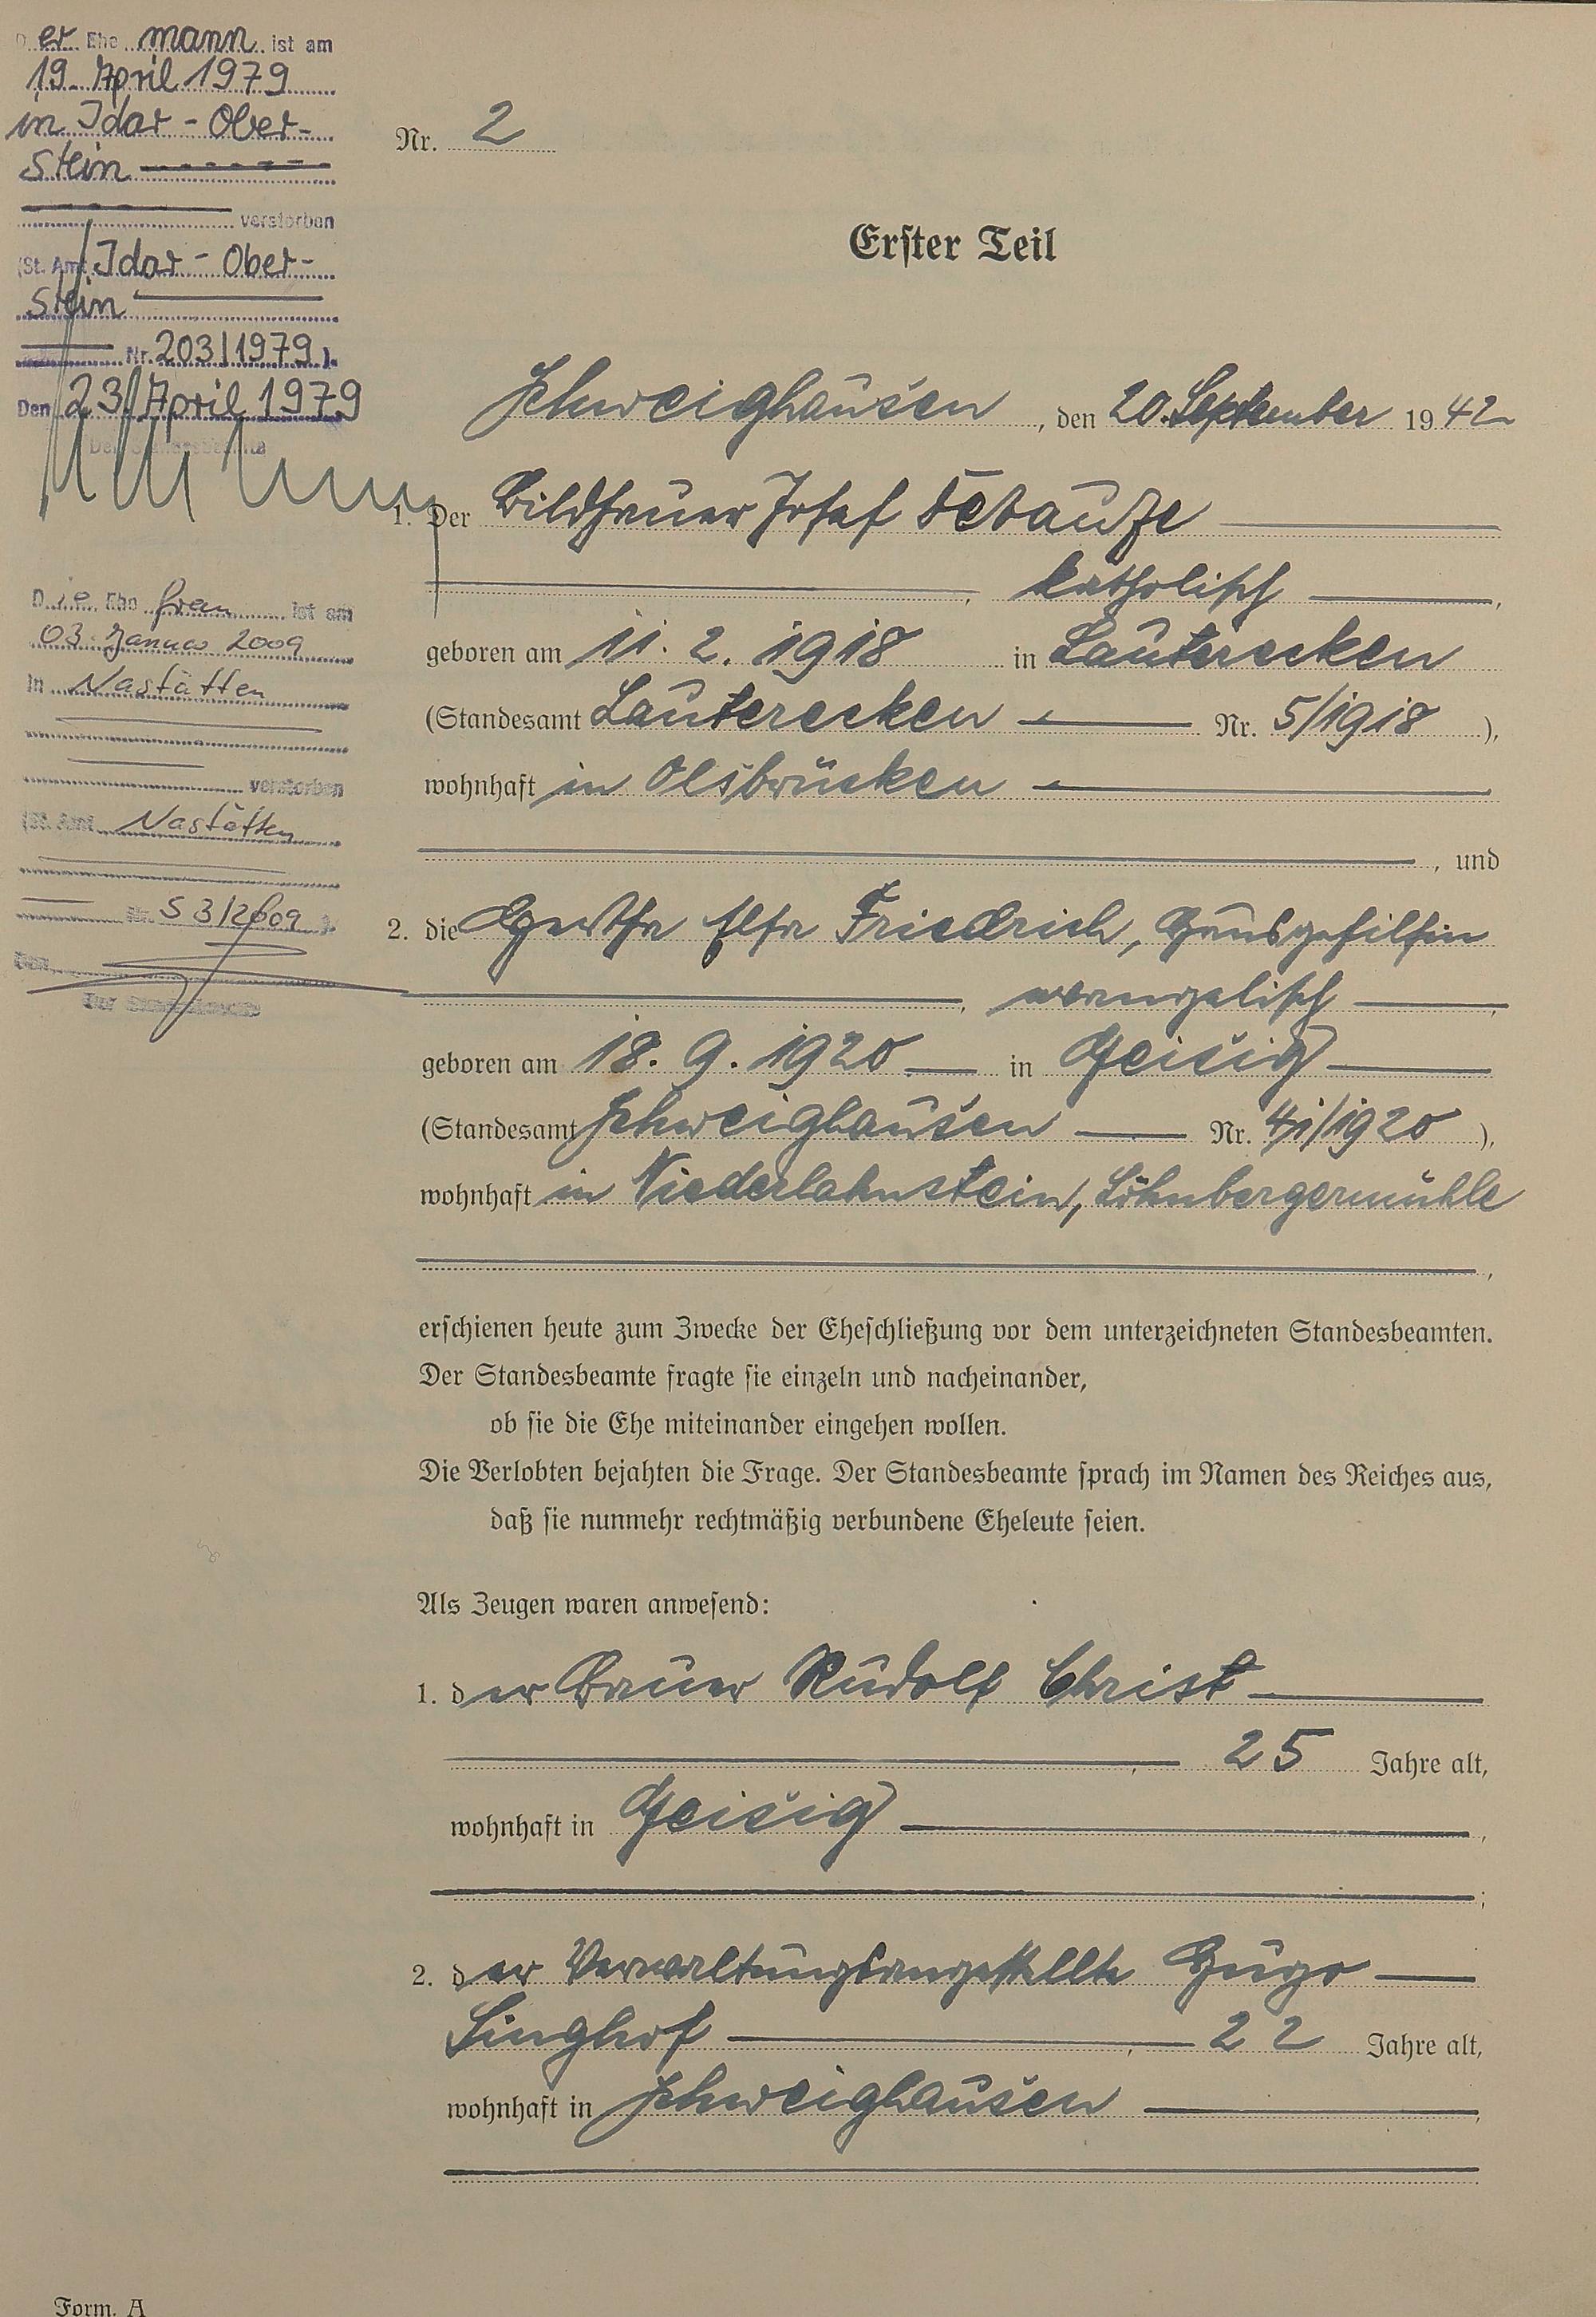 Der Ehe mann ist am
19. April 1979
in Idar-Ober-
stein
verstorben
(St. Amt Idar-Ober-
stein
Nr. 203/1979).
Den 23. April 1979
Der Standesbeamte
Die Ehe frau ist am
03. Januar 2009
in Nastätten
verstorben
(St. Amt Nastätten
Nr. S 3/2009).
Den
Der Standesbeamte
Nr. 2
Erster Teil
Schweighausen, den 20. September 1942
1. Der Bildhauer Josef
katholisch,
geboren am 11. 2. 1918 in Lauterecken
(Standesamt Lauterecken Nr. 5/1918),
wohnhaft in Olsbrücken
, und
2. die Hertha Elsa Friedrich, Hausgehilfin
, evangelisch,
geboren am 18. 9. 1920 in Geisig
(Standesamt Schweighausen Nr. 41/1920),
wohnhaft in Niederlahnstein, Löhnbergermühle
erschienen heute zum Zwecke der Eheschließung vor dem unterzeichneten Standesbeamten.
Der Standesbeamte fragte sie einzeln und nacheinander,
ob sie die Ehe miteinander eingehen wollen.
Die Verlobten bejahten die Frage. Der Standesbeamte sprach im Namen des Reiches aus,
daß sie nunmehr rechtmäßig verbundene Eheleute seien.
Als Zeugen waren anwesend:
1. der Bauer Rudolf Christ
, 25 Jahre alt,
wohnhaft in Geisig,
;
2. der Verwaltungsangestellte Hugo
Singhof, 22 Jahre alt,
wohnhaft in Schweighausen,
Form. A